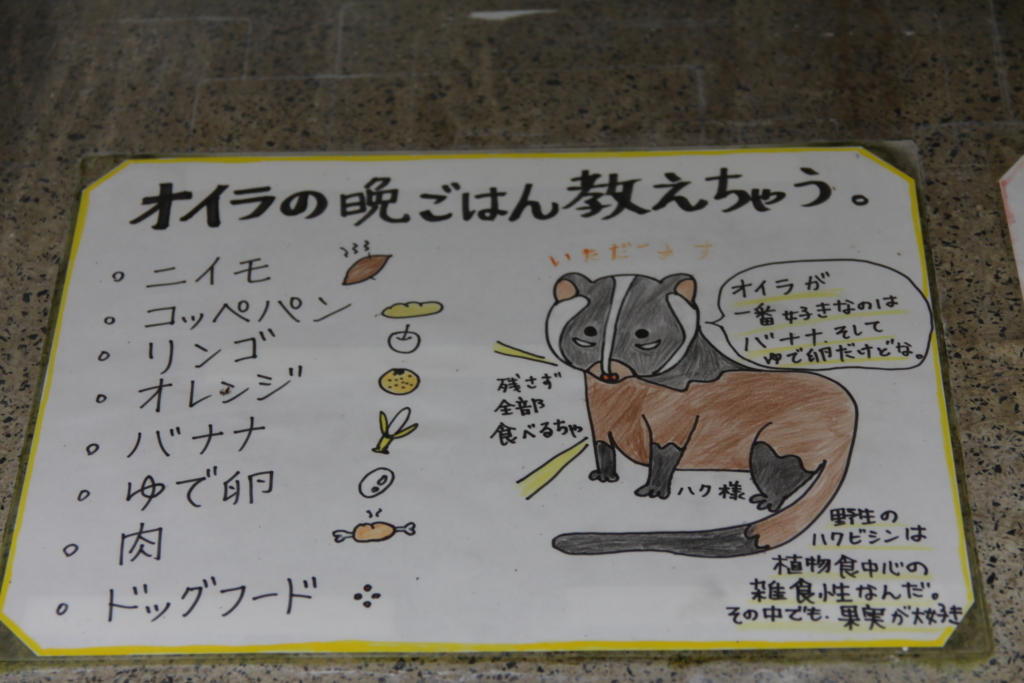 オイラの晩ごはん教えちゃう。
。ニイモ
。コッペパン
。リンゴ
。オレンジ
。バナナ
。ゆで卵
。肉
。ドッグフード
いただーます
オイラが
一番好きなのは
バナナ.そして
ゆで卵だけどな。
残さず
全部
食べるちゃ
ハク様
野生の
ハクビシンは
植物食中心の
雑食性なんだ。
その中でも.果実が大好き